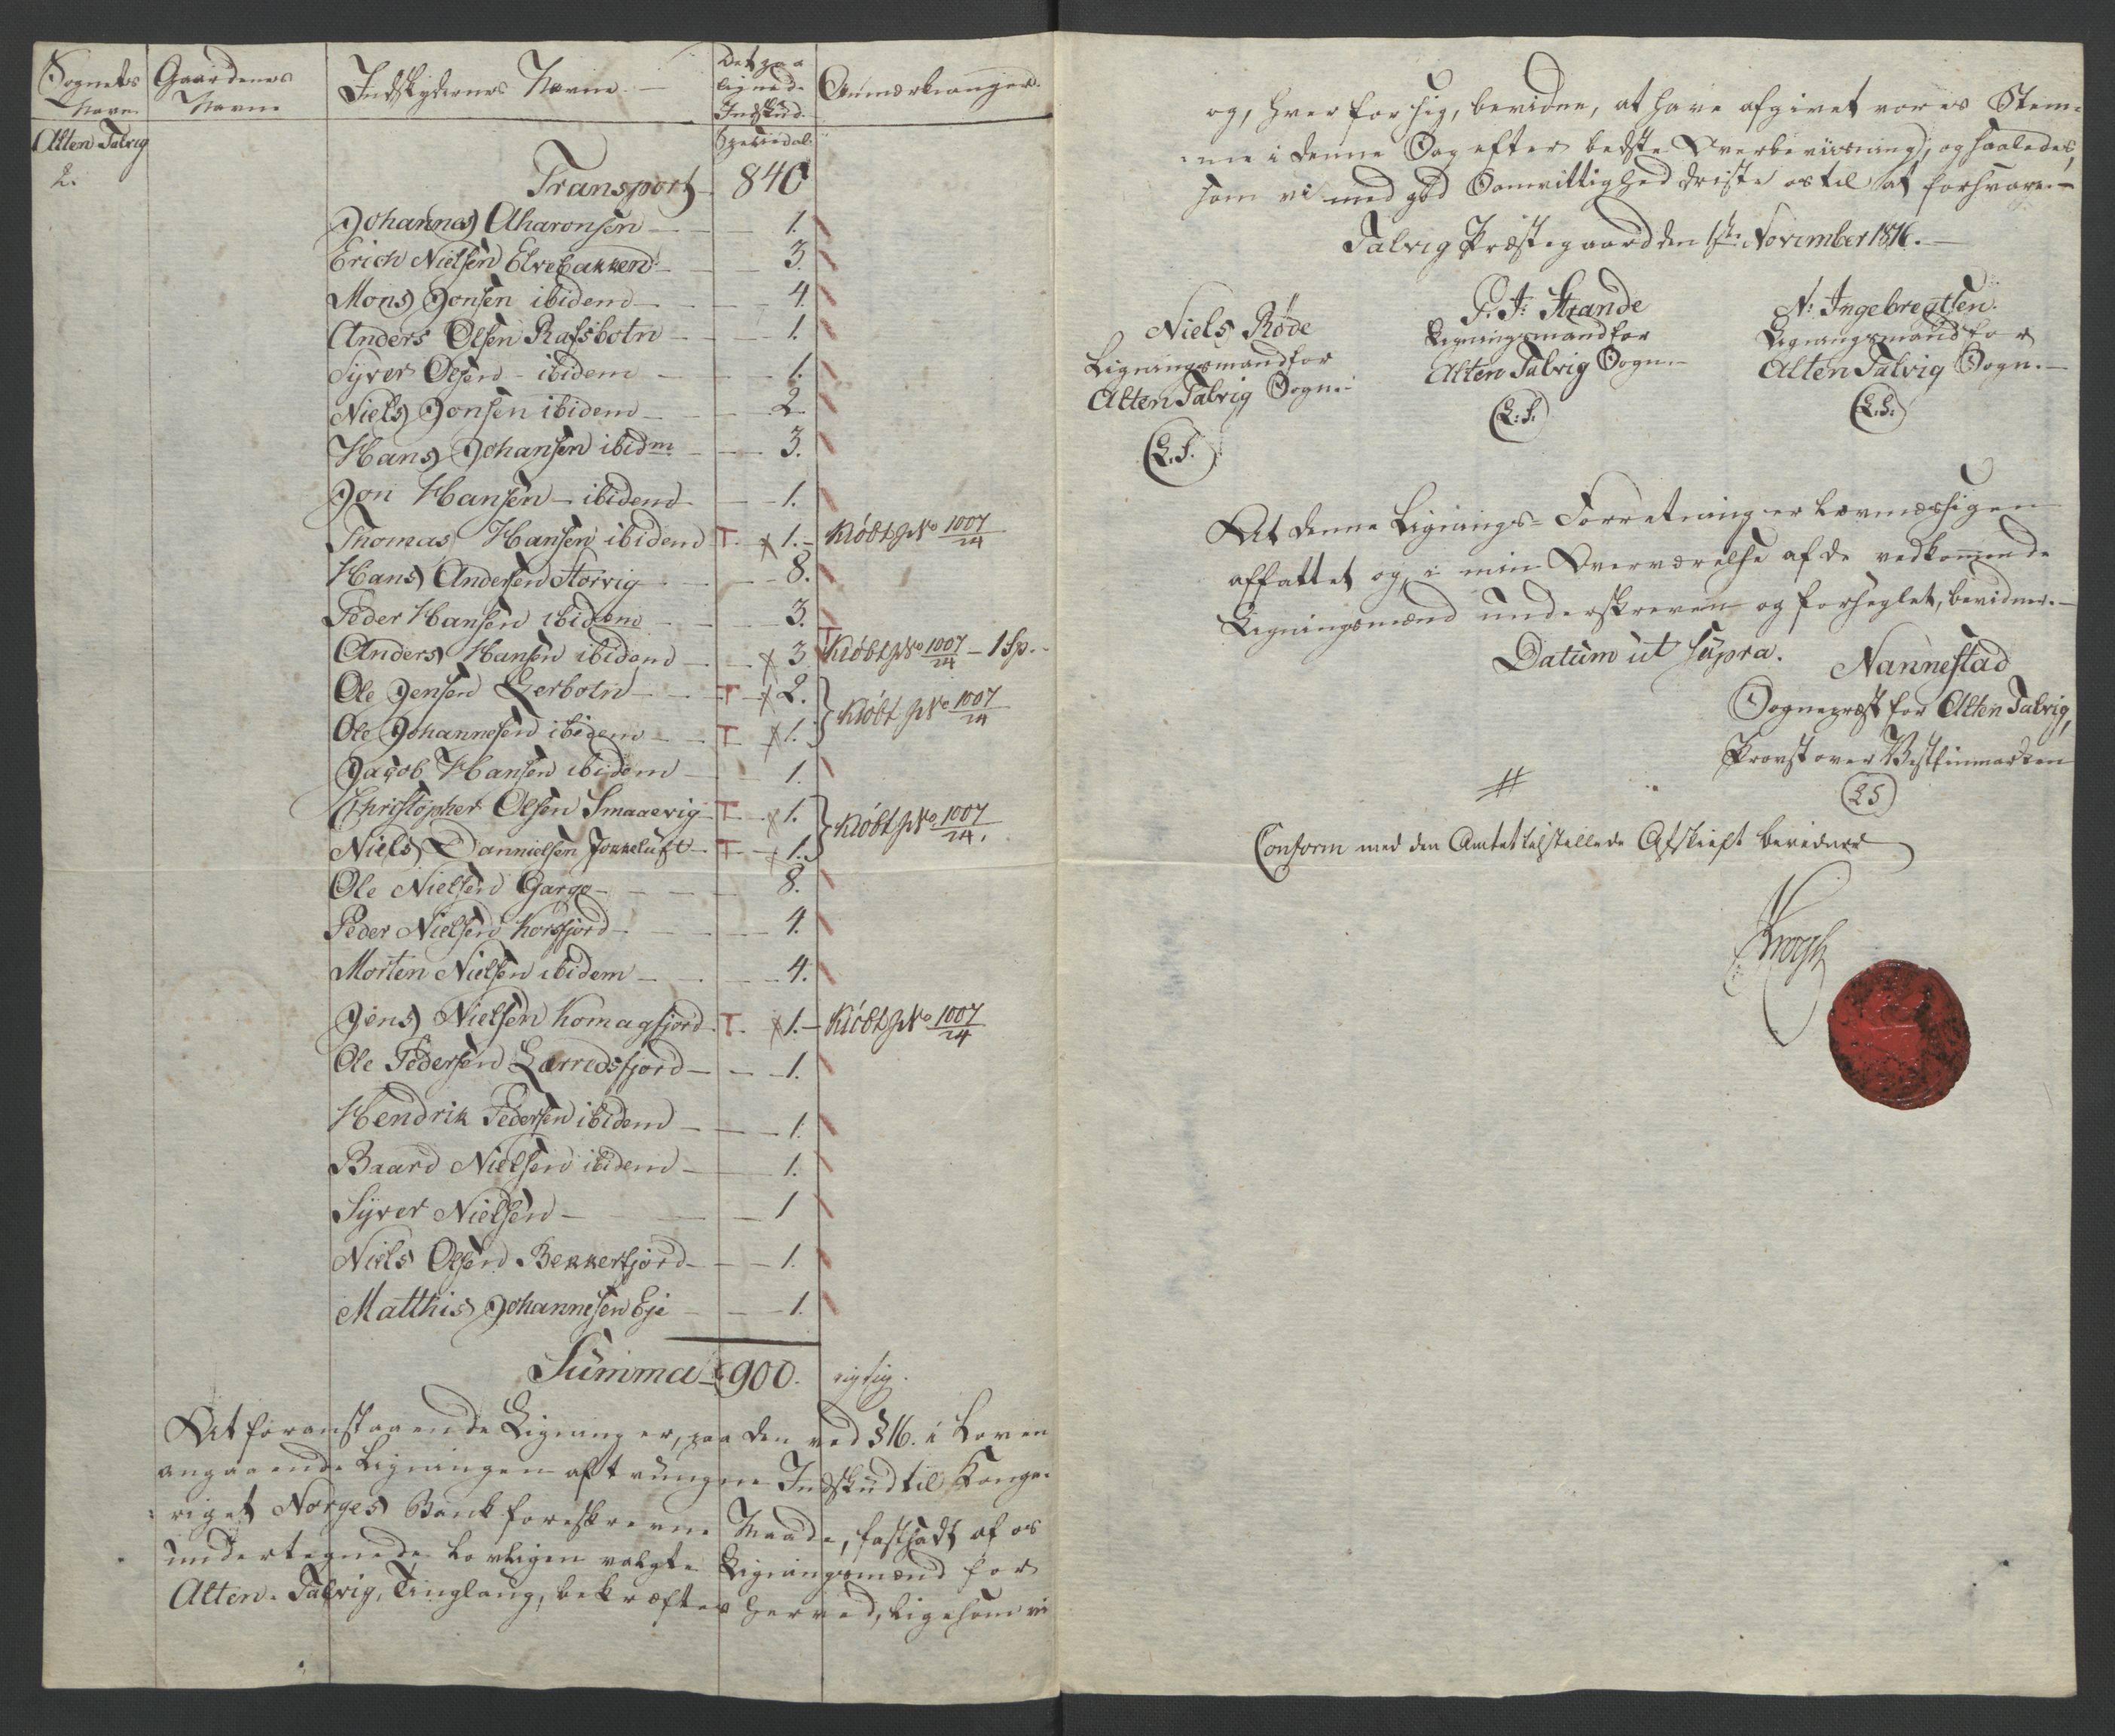 Sognets Navn | Gaardenes Navne | Indskydernes Navne | Det paalignede Indskud. | Anmærkninger.
Alten Talvig | Speciedal:
2. Transport 840
Johannes Aharonsen 1.
Erich Nielsen Elvebakken 3.
Mons Jonsen ibidem 4.
Anders Olsen Rafsbotn 1.
Syver Olsen ibidem 1.
Niels Jonsen ibidem 2
Hans Johansen ibidm 3.
Jon Hansen ibidem 1.
Thomas Hansen ibidem T. x 1. Kiöbt p No 1007/24
Hans Andersen Storvig 8.
Peder Hansen ibidem 3.
Anders Hansen ibidem x 3 T Kiöbt p No 1007/24 - 1 Sp.
Ole Jensen Lerbotn T x 2. } Kiöbt p No 1007/24
Ole Johannesen ibidem T x 1.
Jacob Hansen ibidem 1.
Christopher Olsen Smaaevig T x 1. } Kiöbt p No 1007/24.
Niels Dannielsen Jokkeluft T x 1.
Ole Nielsen Gargo 8.
Peder Nielsen Korsfjord 4.
Morten Nielsen ibidem 4.
Jens Nielsen Komagfjord T. x 1. Kiöbt p No 1007/24
Ole Pedersen Lærredsfjord 1.
Hendrik Pedersen ibidem 1.
Baard Nielsen ibidem 1.
Syver Nielsen 1
Niels Olsen Bekkerfjord 1.
Matthis Johannesen Eje 1.
Summa 900. rigtig.
At foranstaaende Ligning er, paa den ved §16. i Loven
angaaende Ligningen af tvungne Indskud til Konge-
riget Norges Bank foreskrevne Maade, fastsadt af os
undertegnede lovligen valgte Ligningsmænd for
Alten-Talvig, Tinglaug, bekræftes herved, ligesom vi
og, hver for sig, bevidne, at have afgivet vores Stem-
me i denne Sag efter bedste Overbeviisning, og saaledes,
som vi med god Samvittighed driste os til at forsvare.
Talvig Præstegaard den 1ste November 1816.
Niels Röde
Ligningsmand for
Alten Talvig Sogn.
(L.S.)
P. J. Strande
Ligningsmand for
Alten Talvig Sogn.
(L.S.)
N. Ingebregtsen.
Ligningsmand for
Alten Talvig Sogn.
(L.S.)
At denne Lignings-Forretning er lovmæssigen
affattet og, i min Overværelse af de vedkomende
Ligningsmænd underskreven og forseglet, bevidner.
Datum ut supra. Nannestad
Sognepræst for Alten Talvig,
Provst over Vestfinmarken
(LS)
Conform med den Amtet tilstillede Afskrift bevidner
Krogh